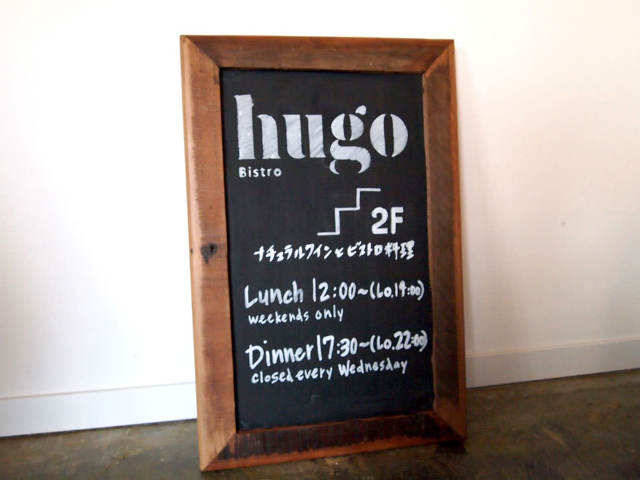 hugo
Bistro
2F
ナチュラルワインとビストロ料理
Lunch 12:00~(Lo.14:00)
weekends only
Dinner 17:30~(Lo.22:00)
closed every Wednesday